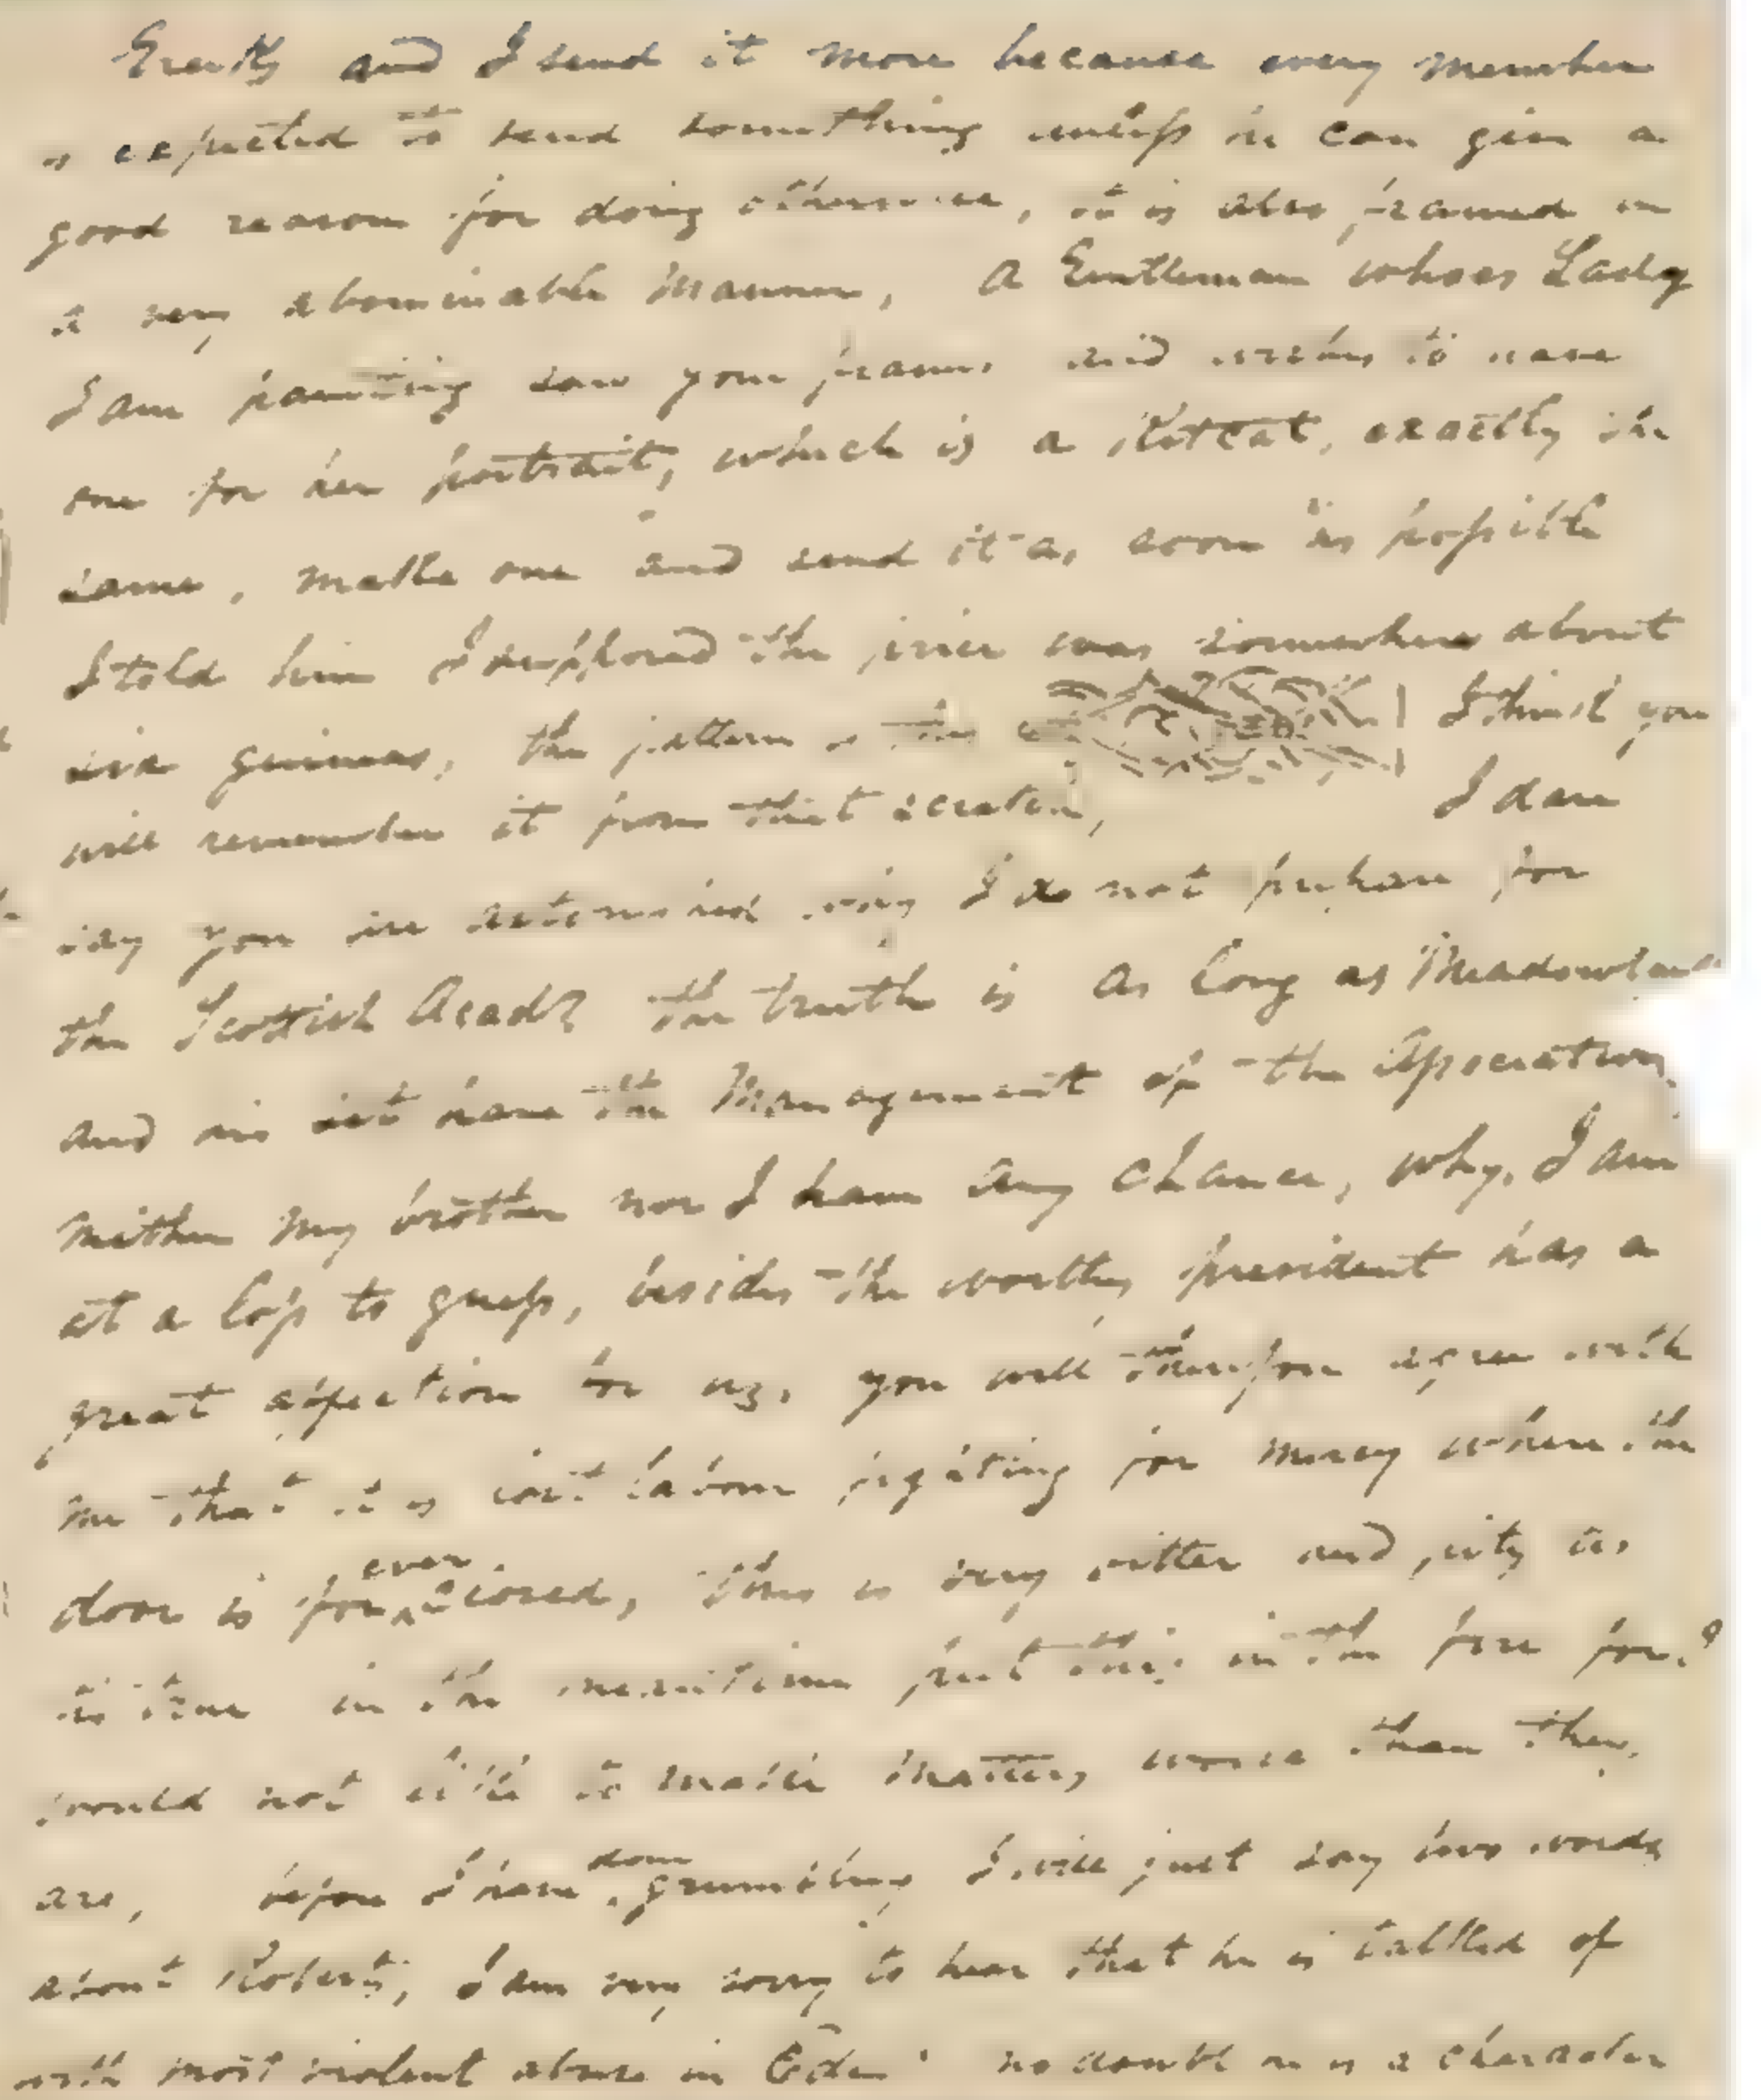 Greatly and I send it more because every member
is expected to send something unless he can give a
good reason for doing otherwise, it is also framed in
a very abominable manner, A Gentleman whoes Lady
I am painting saw your frames and wishes to have
one for her portrait, which is a Kitcat, exactly the
same, make one and send it as soon as possible
I told him I supposed the price was somewhere about
six guineas, the pattern is this I think you
will remember it from that scratch, I dare
say you are astonished why I do not prepare for
the Scottish Acady the truth is As long as Meadowbank
and his set have the Management of the Association
neither my brother nor I have any chance, why, I am
at a loss to guess, besides the worthy president has a
great affection for us, you will therefore agree with
me that it is lost labour fighting for mercy where the
door is for ever closed, this is very bitter and pity tis
tis true in the meantime put this in the fire for I
would not like to make matters worse than they
are, before I have done grumbling I will just say two words
about Roberts, I am very sorry to hear that he is talked of
with most violent abuse in Edinr no doubt he is a character